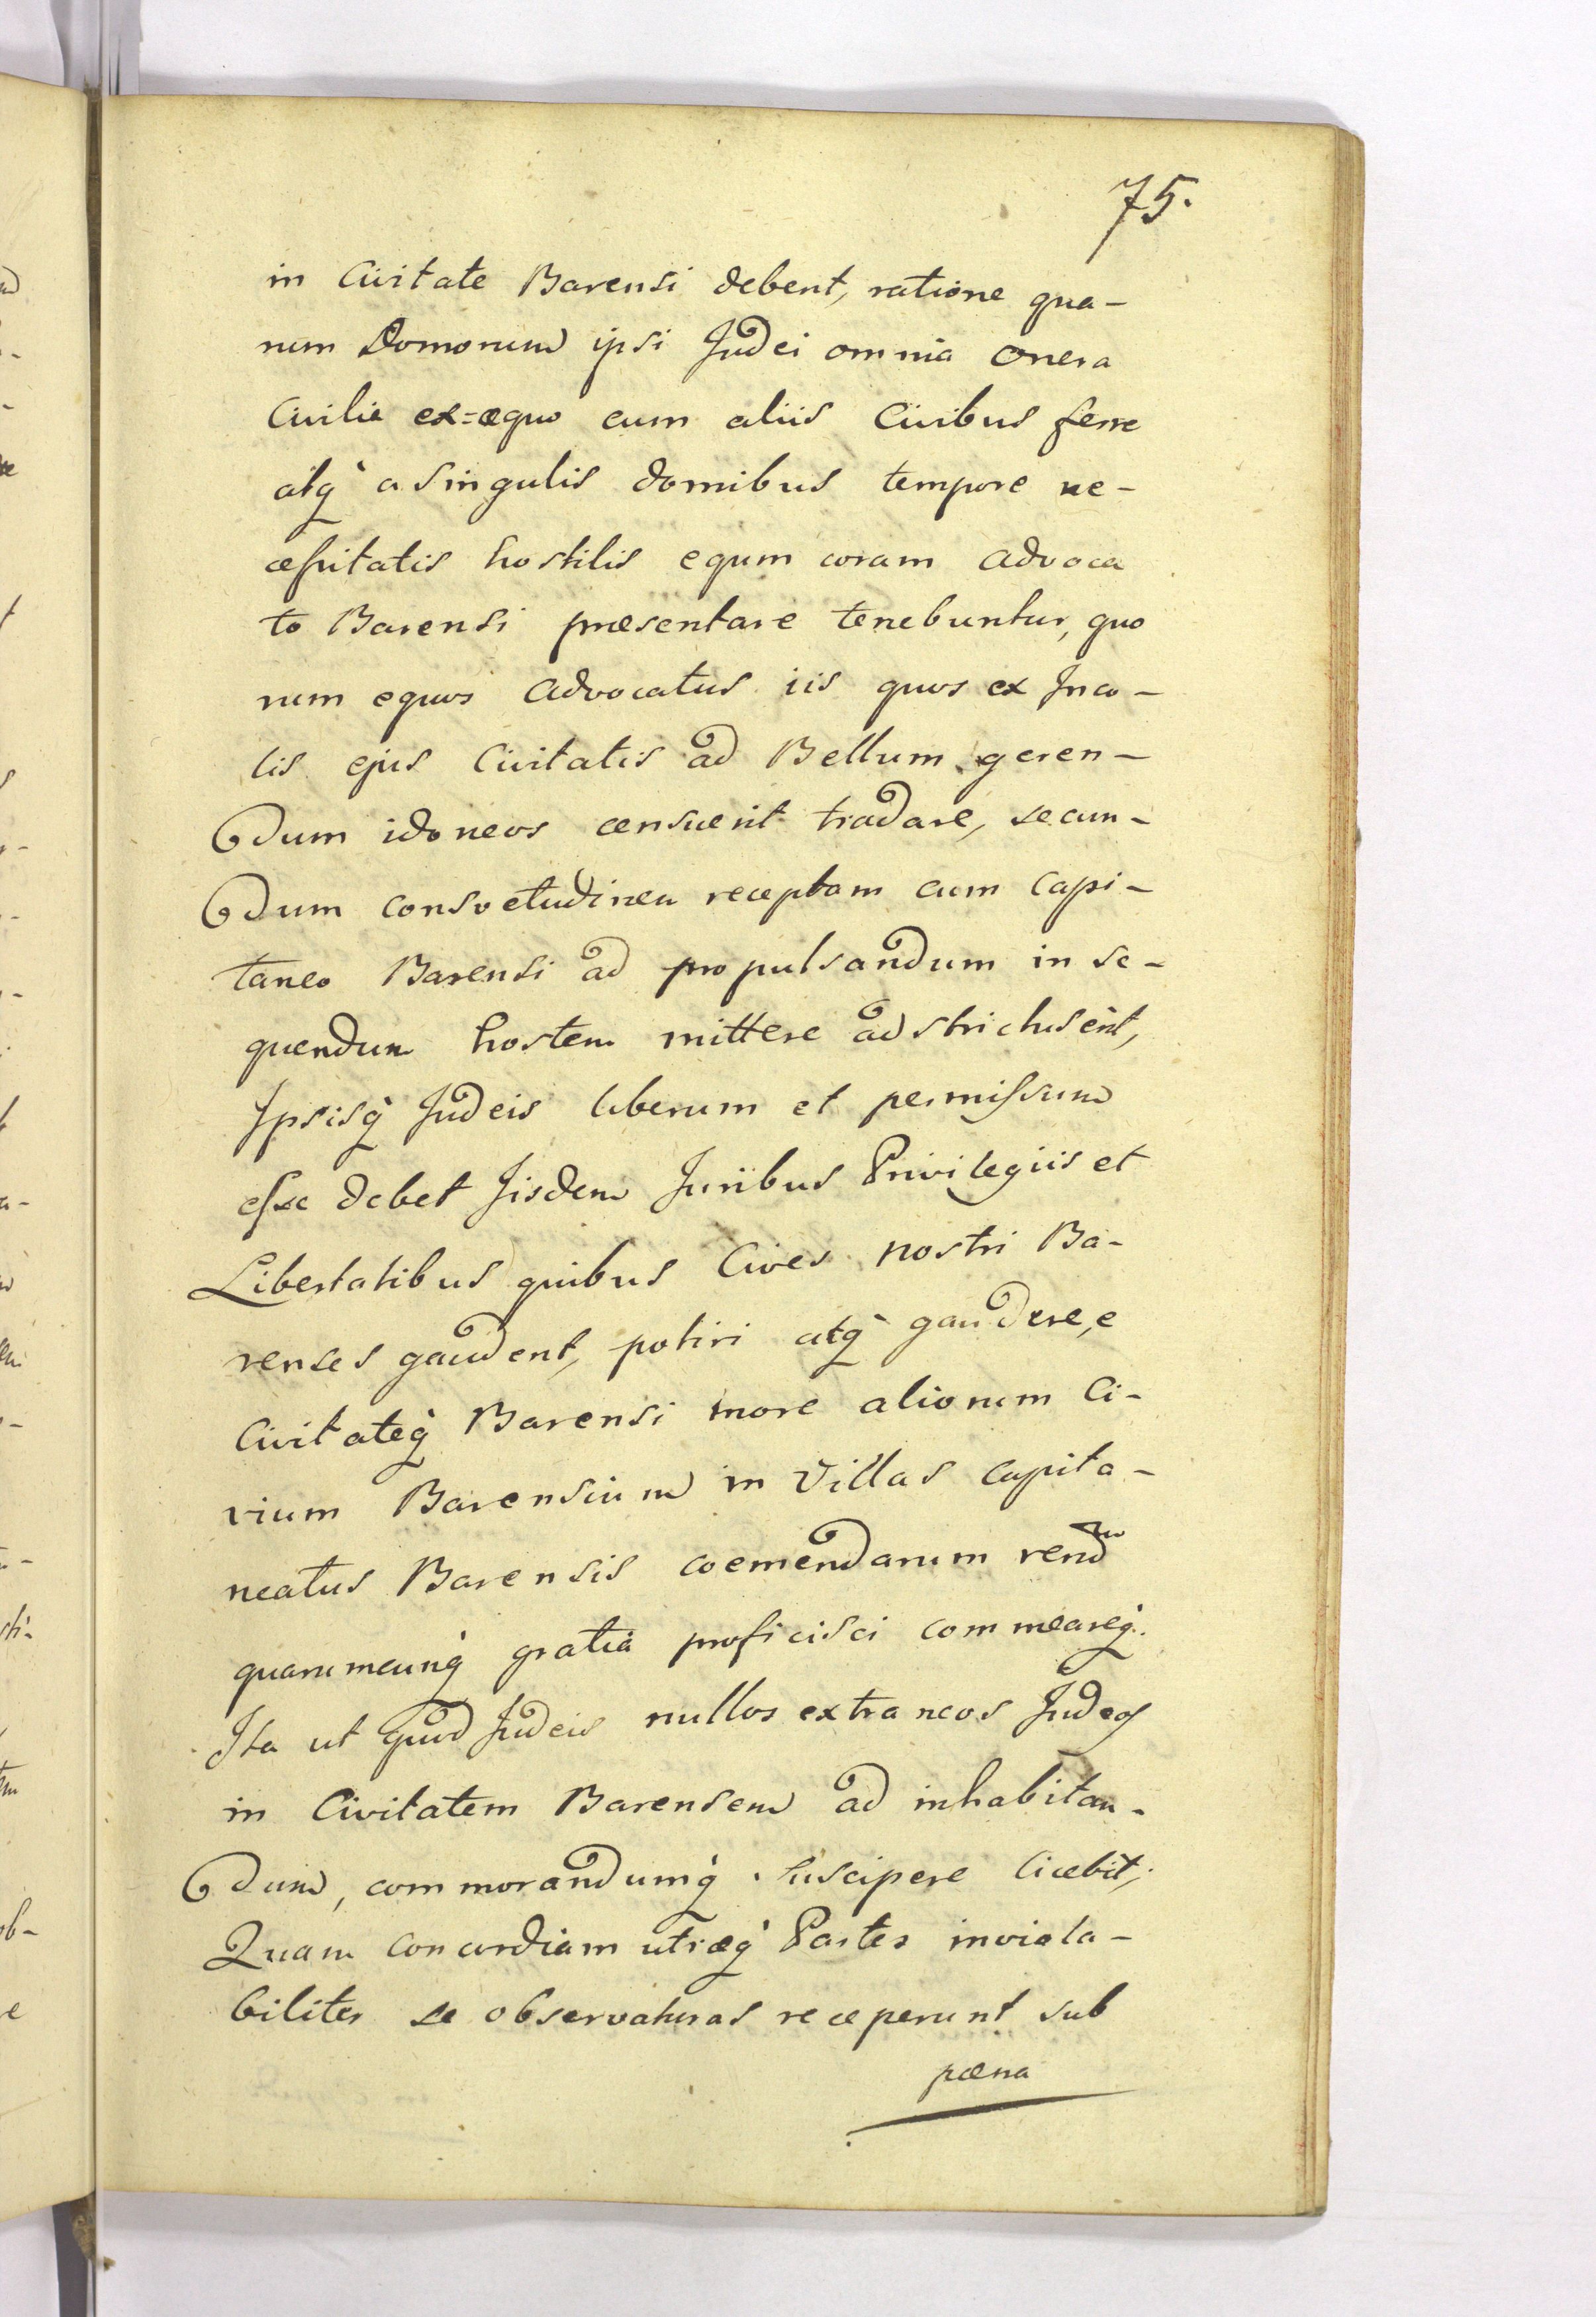 75.
in Civitate Barensi debent, ratione qua-
rum Domorum ipsi Judei omnia onera
Civilia ex=æquo cum aliis Civibus ferre
atq̀ a Singulis domibus tempore ne-
cessitatis hostilis equm coram Advoca
to Barensi præsentare tenebuntur, quo
rum equos Advocatus iis quos ex Inco-
lis ejus Civitatis ad Bellum geren-
dum idoneos censuerit tradare, secun-
dum consvetudinem receptam cum Capi-
taneo Barensi ad propulsandum in se-
quendum hostem mittere adstrictus erit,
Ipsisq̀ Judeis liberum et permissum
esse debet Jisdem Juribus Privilegiis et
Libertatibus quibus Cives nostri Ba-
renses gaudent, potiri atq̀ gaudere, e
Civitateq̀ Barensi more aliorum Ci-
vium Barensium in Villas Capita-
neatus Barensis coemendarum rerum
quarumcunq̀ gratia proficisci commeareq̀.
Ita ut quod Judeis nullos extraneos Judeos
in Civitatem Barensem ad inhabitan-
dum, commorandumq̀ suscipere licebit;
Quam concordiam utræq̀ Partes inviola-
biliter se observaturas receperunt sub
pæna